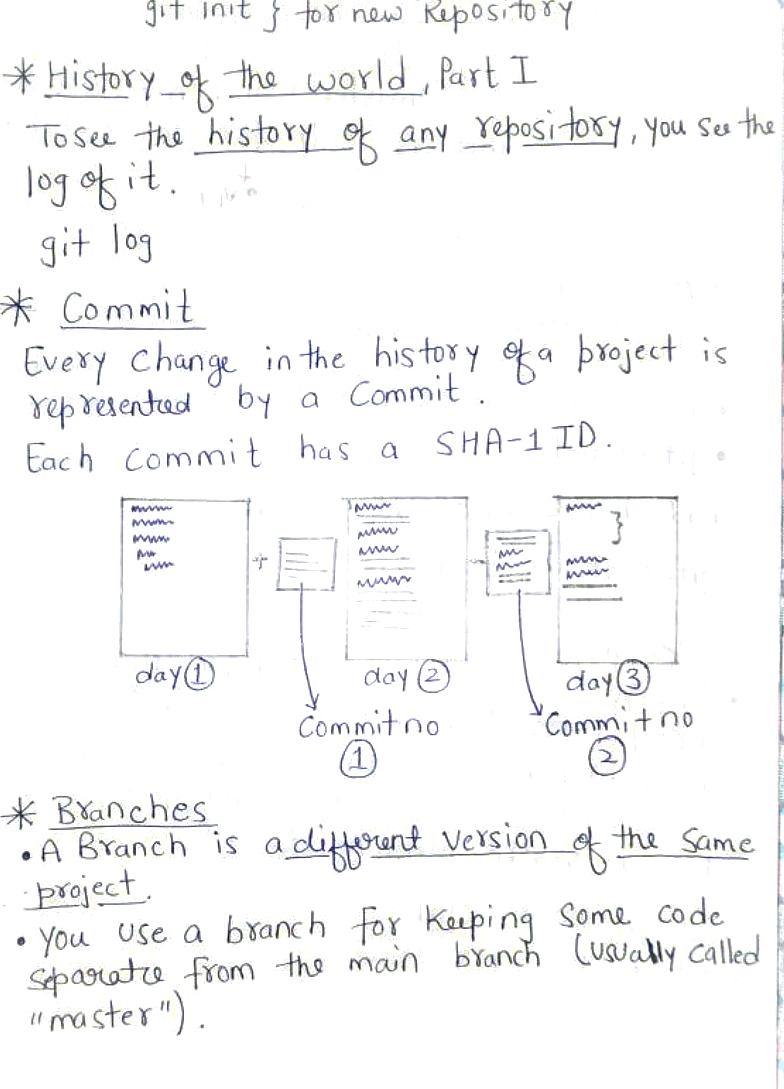 git init } for new Repository
* History of the world, Part I
To see the history of any repository, you see the
log of it.
git log
* Commit
Every Change in the history of a project is
represented by a Commit.
Each commit has a SHA-1 ID.
+
day 1
day 2
day 3
Commit no
1
Commit no
2
* Branches
• A Branch is a different version of the same
project.
• You use a branch for keeping some code
separate from the main branch (usually called
"master").